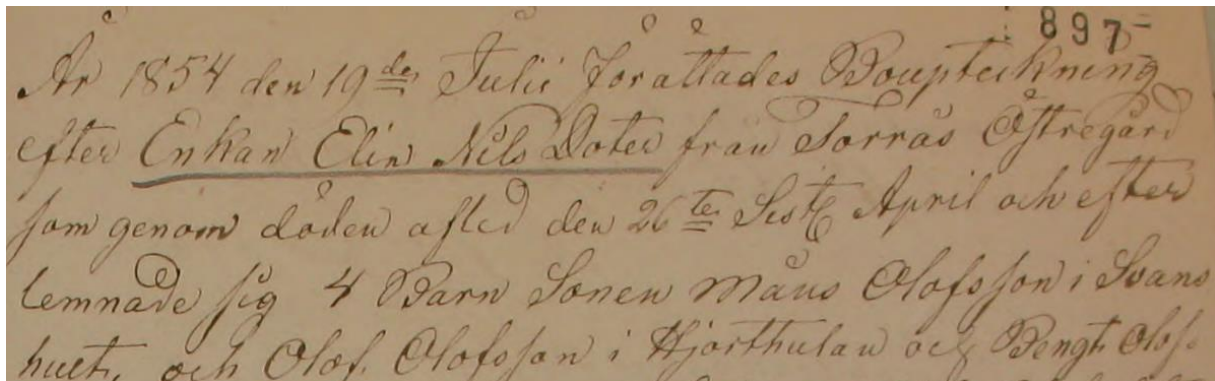 897
År 1854 den 19de Julii förättades Bouptekning
efter Enkan Elin Nils Doter från Torrås Östregård
som genom döden afled den 26te Sist April och efter
lemnade sig 4 Barn Sonen Måns Olofsson i Svans
hult, och Olof Olofsson i Hjorthulan och Bengt Olofs-